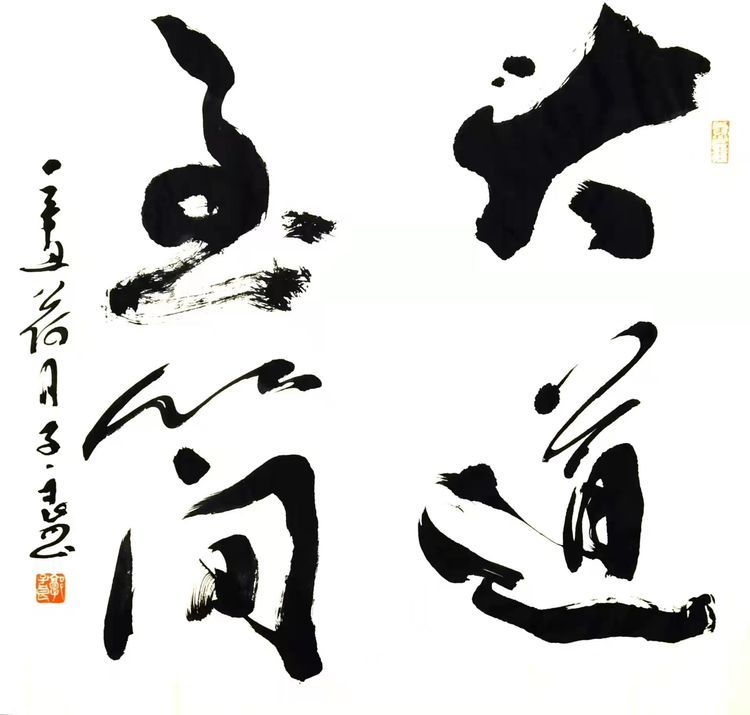 大道
至简
辛丑荷月子